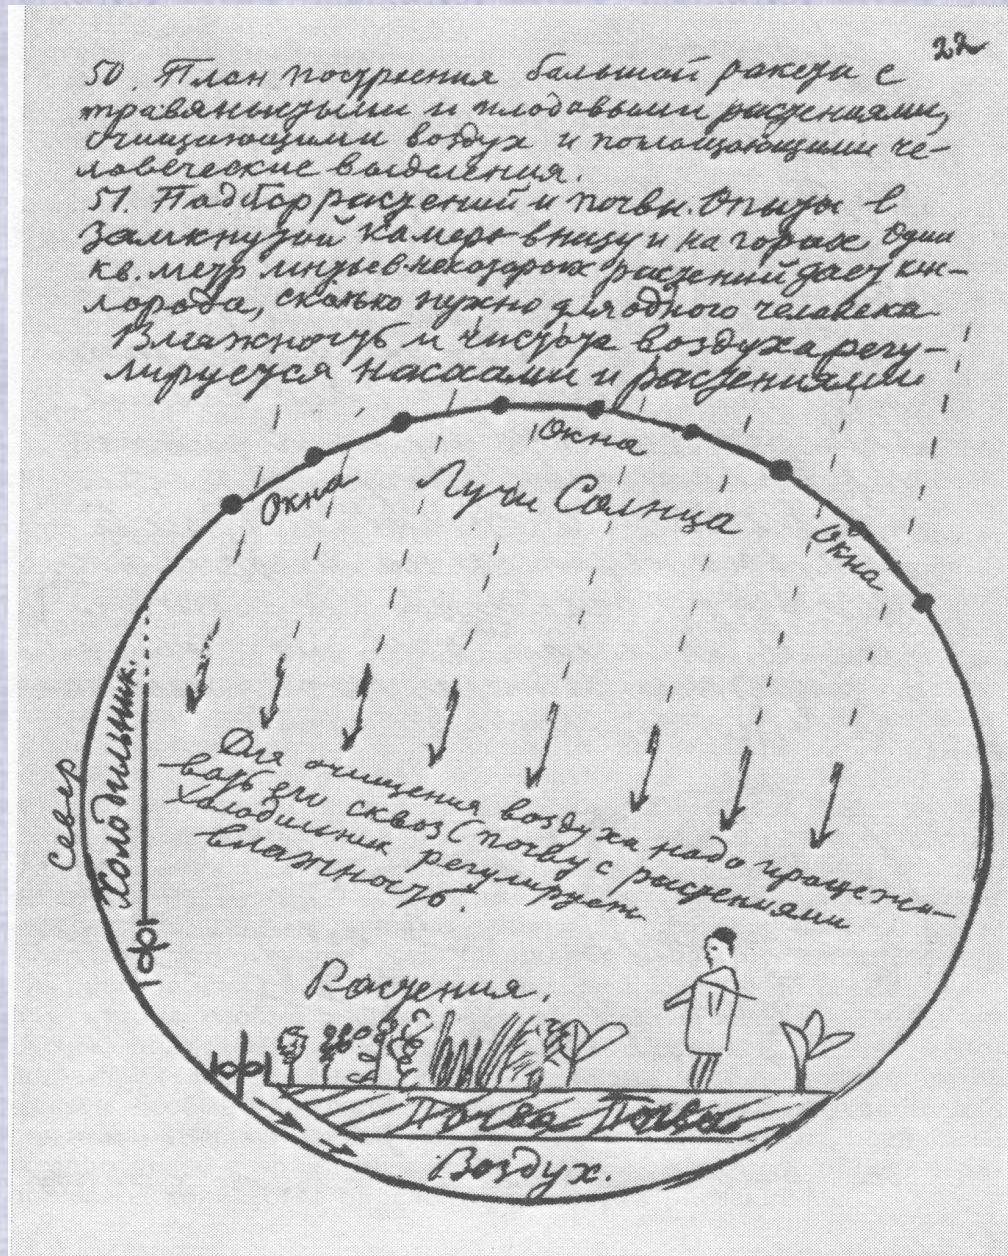 22
50. План построения большой ракеты с
травянистыми и плодовыми растениями,
очищающими воздух и поглощающими че-
ловеческие выделения.
51. Подбор растений и почвы. Опыты в
замкнутой камере внизу и на горах Один
кв. метр листьев некоторых растений дает кис-
лорода, сколько нужно для одного человека
Влажность и чистота воздуха регу-
лируется насосами и растениями
Окна
Окна
Лучи Солнца
Окна
Север
Холодильник.
Для очищения воздуха надо процежи-
вать его сквоз почву с растениями
Холодильник регулирует
влажность.
Растения.
Почва Почва
Воздух.